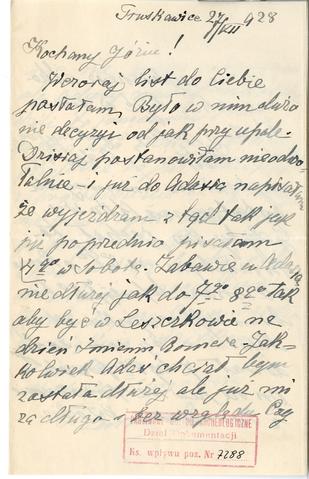 Truskawice 27/VII 928
Kochany Górciu!
Wczoraj list do Ciebie
posłałam. Było w nim dużo
nie decyzyi od jak przy upale.
Dzisiaj postanowiłam nieodwo-
łalnie – i już do Adasia napisałam
że wyjeżdzam z tąd tak jak
już poprzednio pisałam
w sobotę. Zabawię u Adasia
nie dłużej jak do 7go 8go tak
aby być w Leszczkowie na
dzień Imienin Romera. Jak-
kolwiek Adaś chciał bym
została dłużej ale już mi
za długo i bez względu czy
Dział Dokumentacji
Ks. wpływu poz. Nr 7288